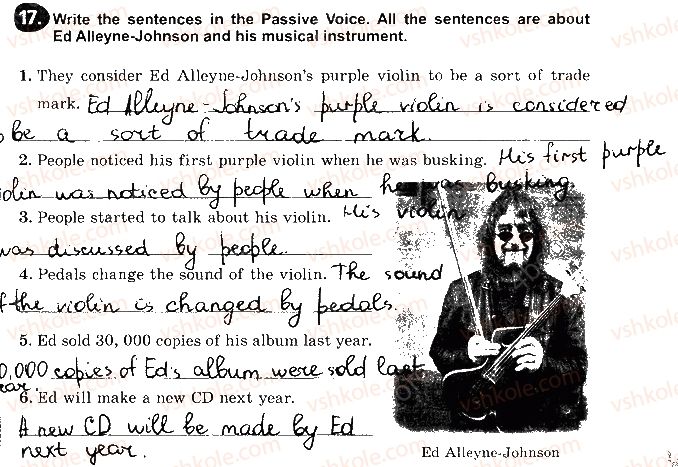 17. Write the sentences in the Passive Voice. All the sentences are about
Ed Alleyne-Johnson and his musical instrument.
1. They consider Ed Alleyne-Johnson's purple violin to be a sort of trade
mark. Ed Alleyne-Johnson's purple violin is considered
be a sort of trade mark.
2. People noticed his first purple violin when he was busking. His first purple
violin was noticed by people when he was busking.
3. People started to talk about his violin. His violin
was discussed by people.
4. Pedals change the sound of the violin. The sound
of the violin is changed by pedals.
5. Ed sold 30, 000 copies of his album last year.
0,000 copies of Ed's album were sold last
year.
6. Ed will make a new CD next year.
A new CD will be made by Ed
next year.
Ed Alleyne-Johnson
vshkole.com